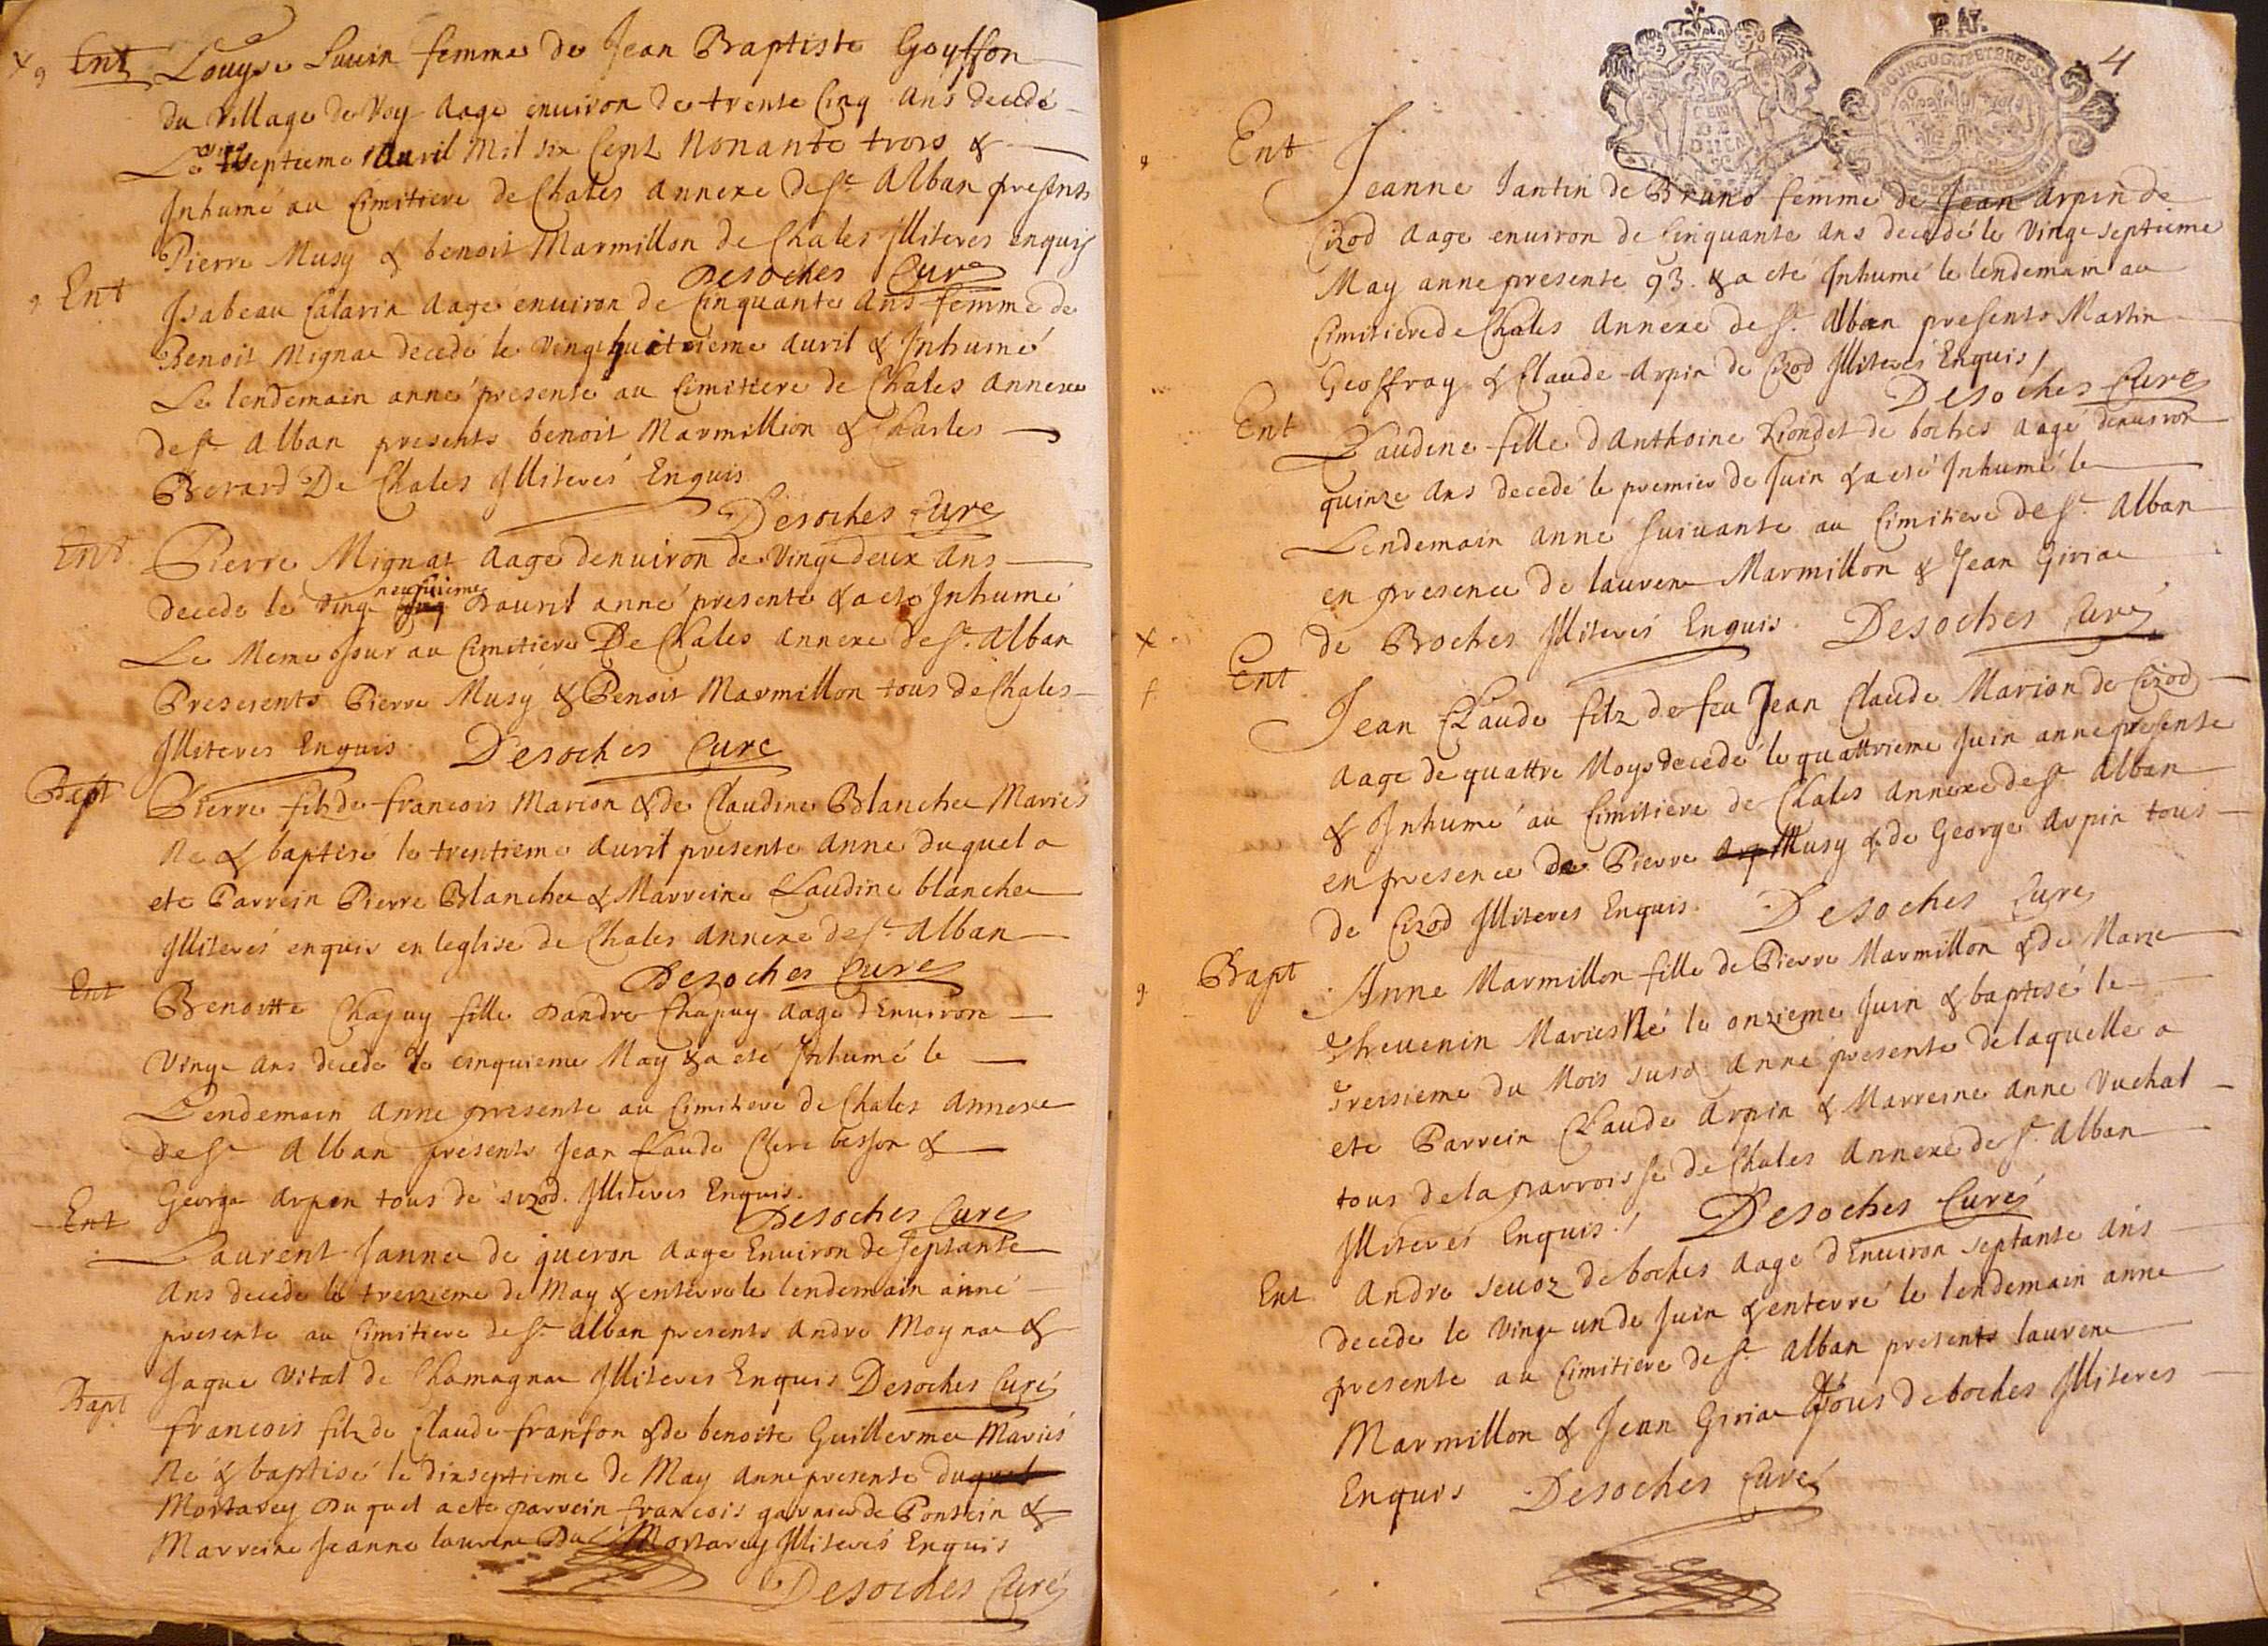 Ent Louyse Livin femme de Jean Baptiste Goyffon
du village de Voy aage environ de trente cinq ans decede
Le septieme Auril Mil six Cent Nonante trois &
Inhumé au Cimitiere de Chales annexe de St Alban presents
Pierre Musy & benoit Marmillon de Chales Illiteres enquis
Desoches Cure
Ent Isabeau Calarin aage enuiron de Cinquante ans femme de
Benoit Mignae decedé le vingthuitrieme auril & Inhumé
Le lendemain anné presente au Cimitiere de Chales annexe
de St Alban presents benoit Marmillion & Charles
Berard De Chales Illiterés Enquis
Desoches Cure
Ent Pierre Mignat aage denuiron de vingt deux ans
decede le vingt neufuieme Dauril anné presente & a eté Inhumé
Le Meme Jour au Cimitiere De Chales annexe de St Alban
Preserents Pierre Musy & Benoit Marmillon tous de Chales
Illiteres Enquis Desoches Cure
Bapt Pierre filz de francois Marion & de Claudine Blanchee Mariés
Ne & baptisé le trentieme auril presente anné duquel a
ete Parrein Pierre Blanchee & Marreine Claudine blanchee
Illiterés enquis en leglise de Chales annexe de St Alban
Desoches Cure
Ent Benoitte Chapuy fille Dandre Chapuy aage dEnuiron
Vingt ans decedé le cinquieme May & a eté Inhumé le
Lendemain anne presente au Cimitiere de Chales annexe
de St Alban presents Jean Claude Clere besson &
George Arpin tous de sizod Illiteres Enquis
Desoches Cure
Ent Laurent Jannee de queron aage Enuiron de septante
ans decede le treizieme de May & enterre le lendemain anné
presente au Cimitiere de St alban presents andre Moynae &
Jaque Vital de Chamagnae Illiteres Enquis Desoches Curé
Bapt francois filz de Claude franson & de benoite Guillermee Mariés
Né & baptisé le dixseptieme de May anne presente duquel
Mortarey Duquel a ete parrein francois garnier de Poncin &
Marreine Jeanne laurene Du Mortarey Illiterés Enquis
Desoches Curé
4
Ent Jeanne Jantin de Bruno femme de Jean arpin de
Cizod aage enuiron de Cinquante ans decedé le vingt septieme
May anne presente 93. & a eté Inhumé le lendemain au
Cimitiere de Chales annexe de St Alban presents Martin
Geoffray & Claude Arpin de Cizod Illiterés Enquis
Desoches Cure
Ent Claudine fille dAnthoine Riondet de boches aage denuiron
quinze ans decedé le premier de Juin & a eté Inhumé le
Lendemain anné suiuante au Cimitiere de St Alban
en presence de laurene Marmillon & Jean Giriae
de Boches Illiterés Enquis Desoches Curé
Ent Jean Claude filz de feu Jean Claude Marion de Cizod
aage de quattre Moys decedé le quattrieme Juin anne presente
& Inhumé au Cimitiere de Chales annexe de St Alban
en presence de Pierre Musy & de George Arpin tous
de Cizod Illiteres Enquis Desoches Cure
Bapt Anne Marmillon fille de Pierre Marmillon & de Marie
Theuenin Mariés Né le onzieme Juin & baptisé le
treisieme du Mois susd anné presente de laquelle a
ete Parrein Claude Arpin & Marreine Anne Vuchat
tous de la parroisse de Chales annexe de St Alban
Illiterés Enquis Desoches Curé
Ent Andre seuoz de boches aage dEnuiron septante ans
decede le vingt un de Juin & enterré le lendemain anne
presente au Cimitiere de St Alban presents laurene
Marmillon & Jean Giriae tous de boches Illiteres
Enquis Desoches Curé